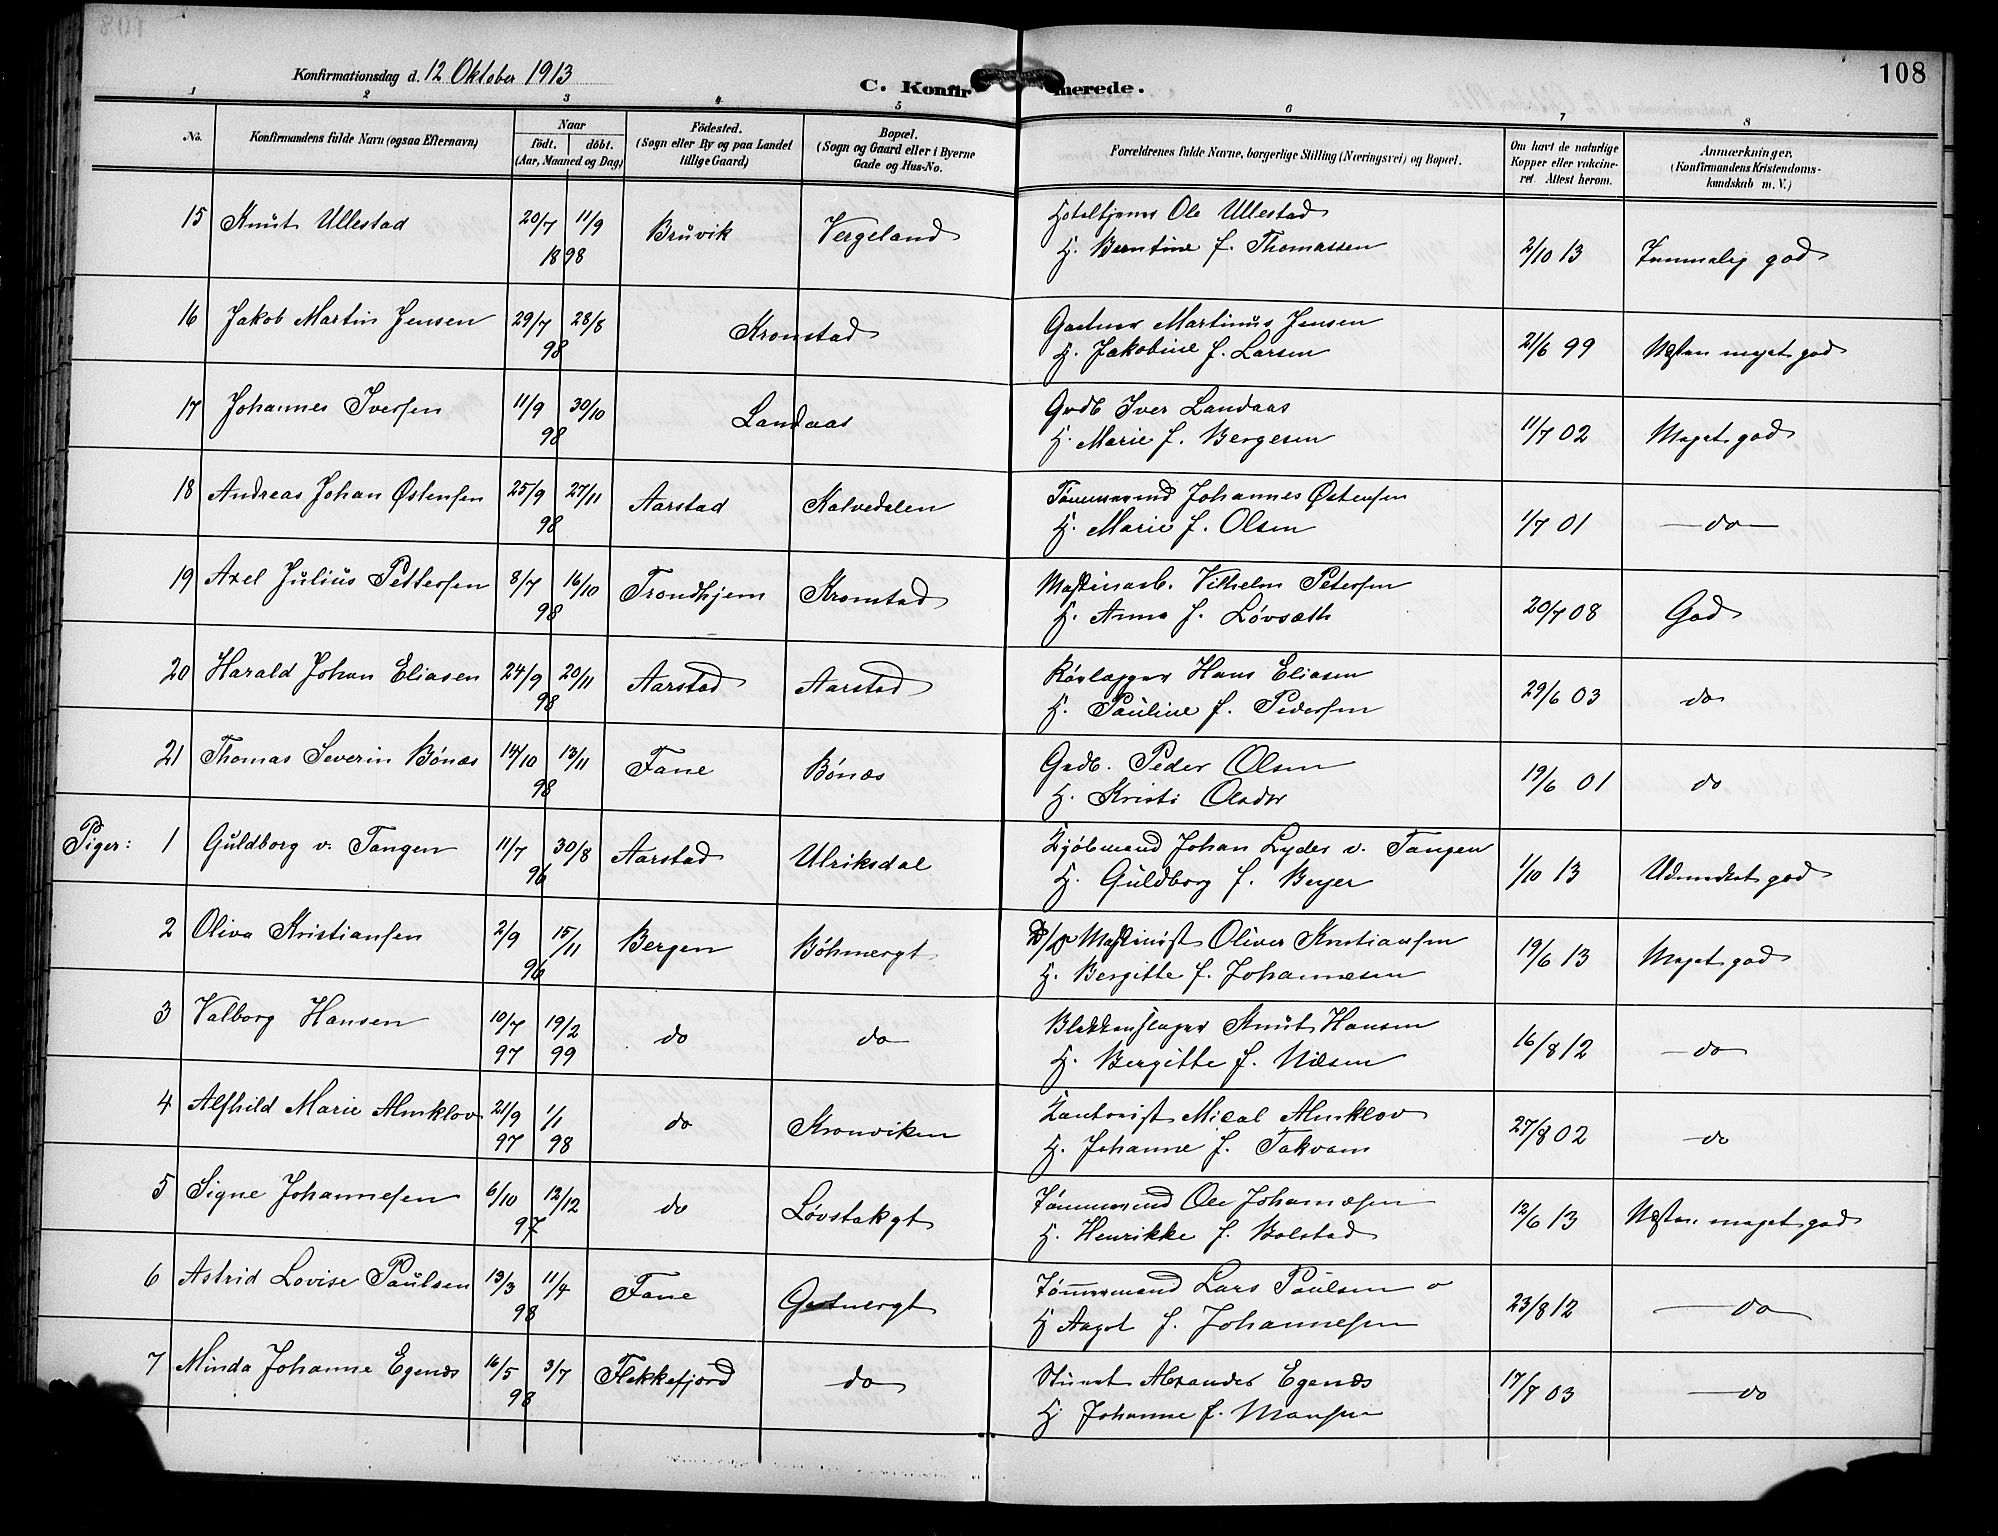 108
Konfirmationsdag d. 12 Oktober 1913
C. Konfirmerede.
1 2 3 4 5 6 7 8
No. Konfirmandens fulde Navn (ogsaa Efternavn) Naar født. døbt. (Aar, Maaned og Dag) Fødested. (Sogn eller By og paa Landet tillige Gaard) Bopæl. (Sogn og Gaard eller i Byerne Gade og Hus-No. Forældrenes fulde Navne, borgerlige Stilling (Næringsvei) og Bopæl. Om havt de naturlige Kopper eller vakcineret. Attest herom. Anmærkninger. (Konfirmandens Kristendomskundskab m. V.)
15 Knut Ullestad 20/7 11/9 1898 Bruvik Vergeland Hoteltjener Ole Ullestad
H. Berntine f. Thomassen 2/10 13 Temmelig god
16 Jakob Martin Jensen 29/7 28/8 98 Kronstad Gartner Martinus Jensen
H. Jakobine f. Larsen 21/6 99 Næsten meget god
17 Johannes Iversen 11/9 30/10 98 Landaas Grdb Iver Landaas
H. Marie f. Bergesen 11/7 02 Meget god
18 Andreas Johan Østensen 25/9 27/11 98 Aarstad Kalvedalen Tømmermd Johannes Østensen
H. Marie f. Olsen 1/7 01 do
19 Axel Julius Pettersen 8/7 16/10 98 Trondhjem Kronstad Maskinarb. Vilhelm Petersen
H. Anna f. Løvsæth 20/7 08 God
20 Harald Johan Eliasen 24/9 20/11 98 Aarstad Aarstad Rørlægger Hans Eliasen
H. Pauline f. Pedersen 29/6 03 do
21 Thomas Severin Bønæs 14/10 13/11 98 Fane Bønæs Grdb. Peder Olsen
H. Kristi Olsdtr 19/6 01 do
Piger: 1 Guldborg v. Tangen 11/7 30/8 96 Aarstad Ulriksdal Kjøbmand Johan Lyder v. Tangen
H. Guldborg f. Beyer 1/10 13 Udmerket god
2 Oliva Kristiansen 2/9 15/11 96 Bergen Böhmergt D/S Maskinist Oliver Kristiansen
H. Bergitte f. Johannesen 19/6 13 Meget god
3 Valborg Hansen 10/7 97 19/2 99 do do Blikkenslager Knut Hansen
H. Bergitte f. Nilsen 16/8 12 do
4 Alfhild Marie Almklov 21/9 97 1/1 98 do Kronviken Kontorist Mikal Almklov
H. Johanne f. Takvam 27/8 02 do
5 Signe Johannesen 6/10 12/12 97 do Løvstakgt Tømmermd Ole Johannesen
H. Henrikke f. Bolstad 12/6 13 Næsten meget god
6 Astrid Lovise Paulsen 13/3 11/4 98 Fane Gartnergt Tømmermand Lars Paulsen o
H Aagot f. Johannesen 23/8 12 do
7 Minda Johanne Egenæs 16/5 3/7 98 Flekkefjord do Stuert Alexander Egenæs
H Johanne f. Monsen 17/7 03 do